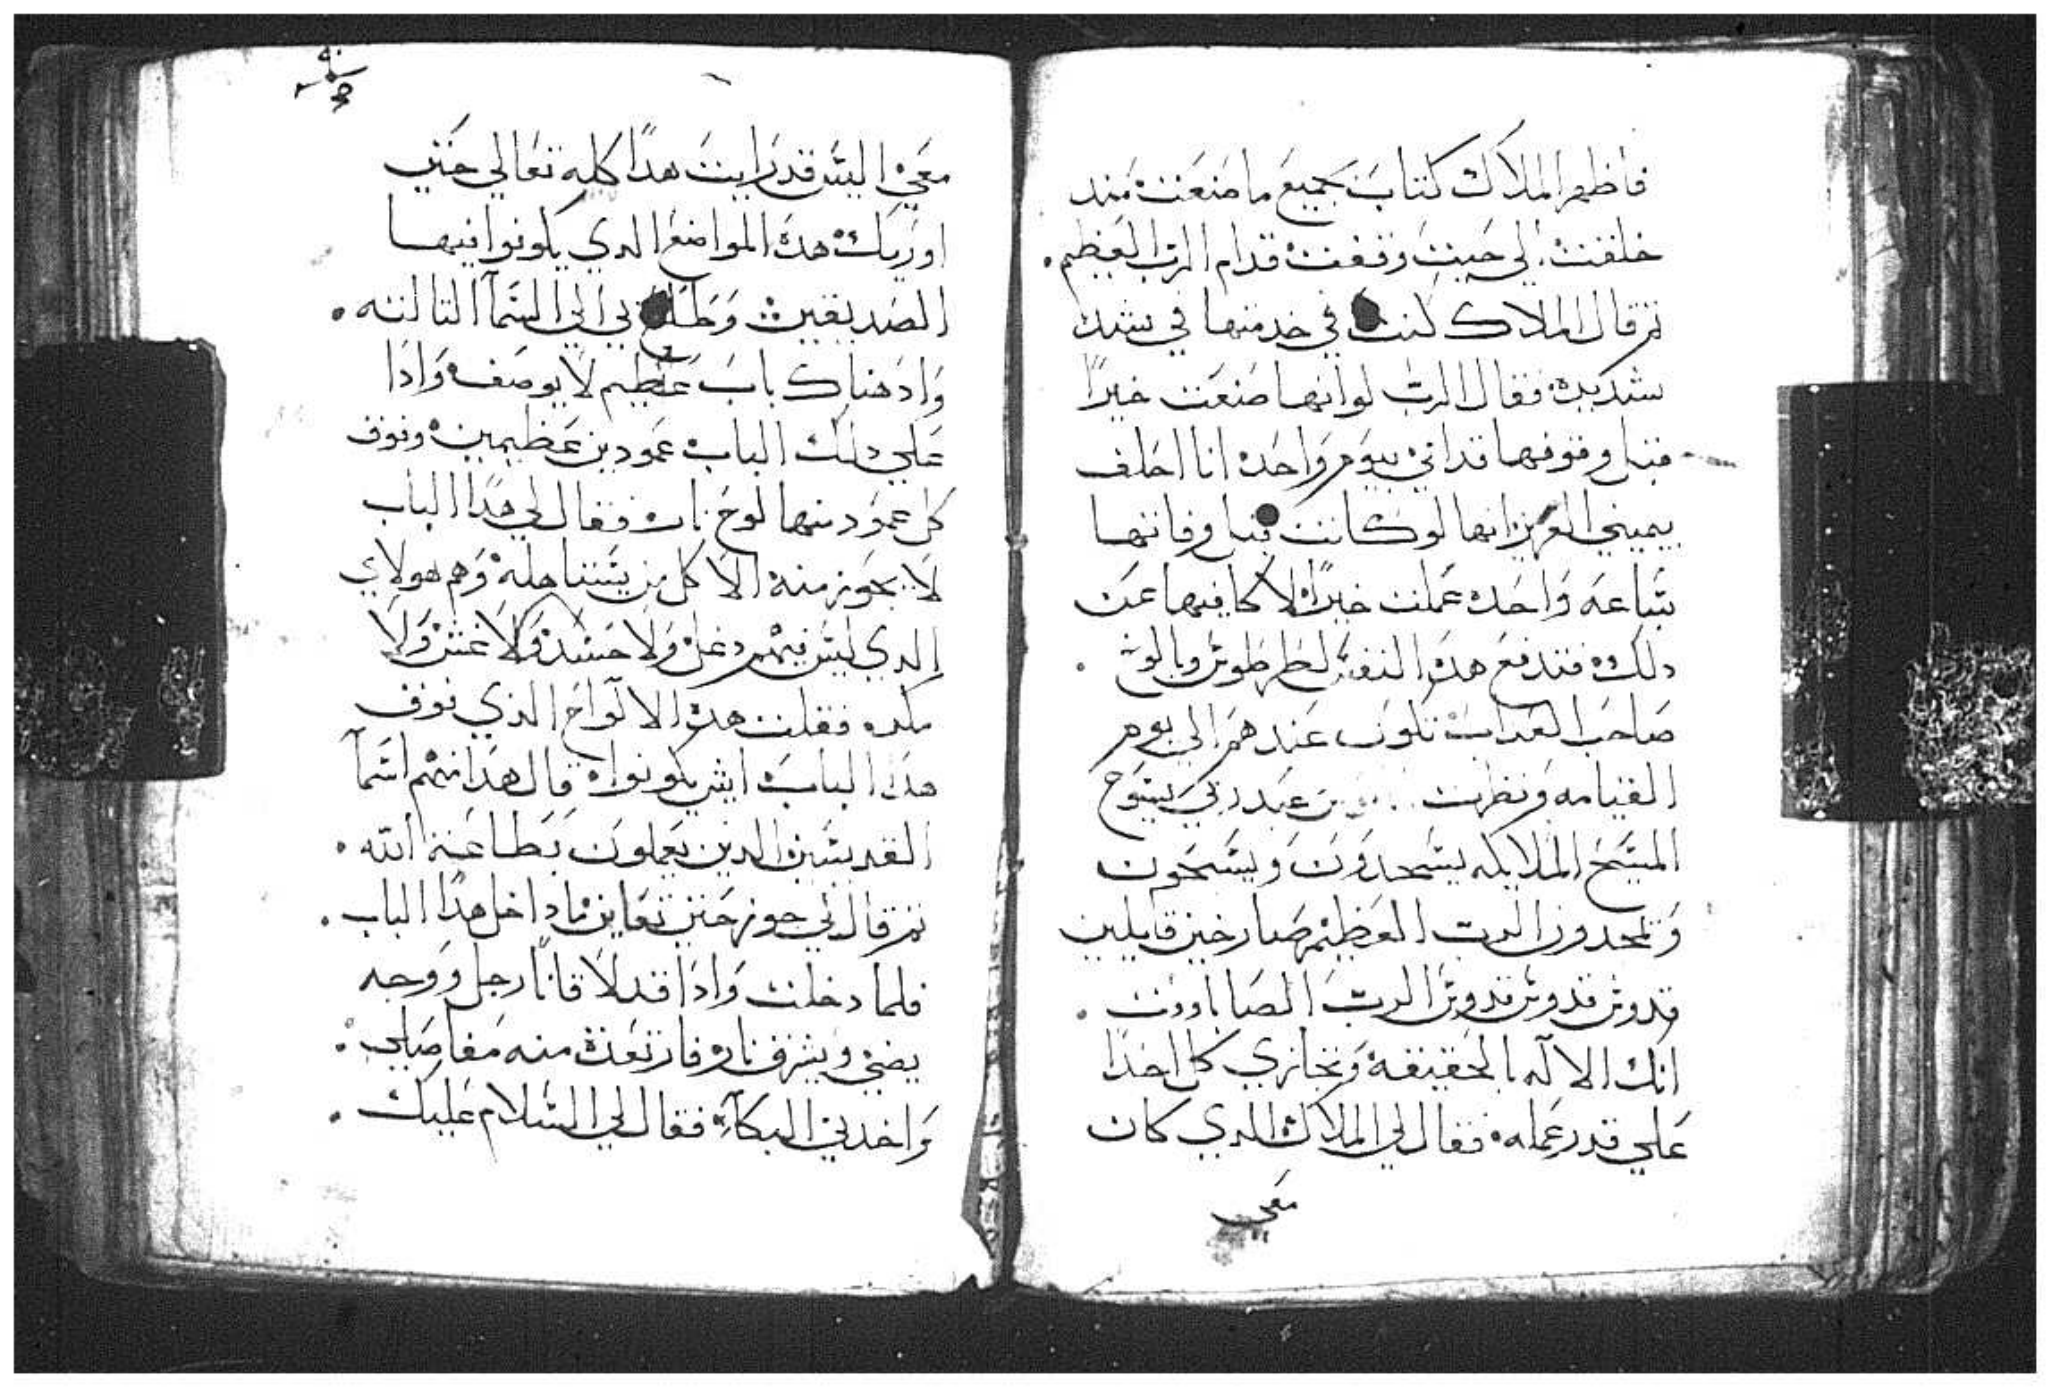 فاظهر الملاك كتاب بجميع ما صنعت مند
خلقت الي حيت وقفت قدام الرب العظيم.
تم قال الملاك كنت في خدمتها في شدا
شديدة فقال الرب لو انها صنعت خيرًا
قبل وقوفها قدامي بيوم واحد انا احلف
بيميني العزيز انها لو كانت قبل وفاتها
بساعه واحده عملت خيرًا لاكافيها عن
دلك فتدفع هده النفس لطرطوش وبالوش.
صاحب العداب تكون عندهم الي يوم
القيامه ونظرت عند ربي يسوع
المسيح الملايكه يسجدون ويسبحون
ويمجدون الرب العظيم صارخين قايلين
قدوش قدوش قدوش الرب الصاباووت.
انك الاله بالحقيقة وتجازي كل احدًا
علي قدر عمله فقال لي الملاك الدي كان
معي
معي اليس قد رايت هدا كله تعالي حتي
اوريك هده المواضع الدي يكونوا فيها
الصديقين وطلع بي الي السمآ التالته.
واد هناك باب عظيم لا يوصف وادا
علي دلك الباب عمودين عظيمين وفوق
كل عمود منها لوح نار فقال لي هدا الباب
لا يجوز منه الا كل من يستاهله وهم هولاي
الدي ليس فيهم دغل ولا حسد ولا غش ولا
مكده فقلت هده الالواح الذي فوق
هدا الباب ايش يكونوا قال هدا منهم اسمآ
القديسين الدين يعملون بطاعة الله.
تم قال لي جوز حتي تعاين ما داخل هدا الباب.
فلما دخلت وادا قد لاقانا رجل ووجه
يضي ويشرق نار فارتعدة منه مفاصلي.
واخدني البكآ فقال لي السلام عليك.